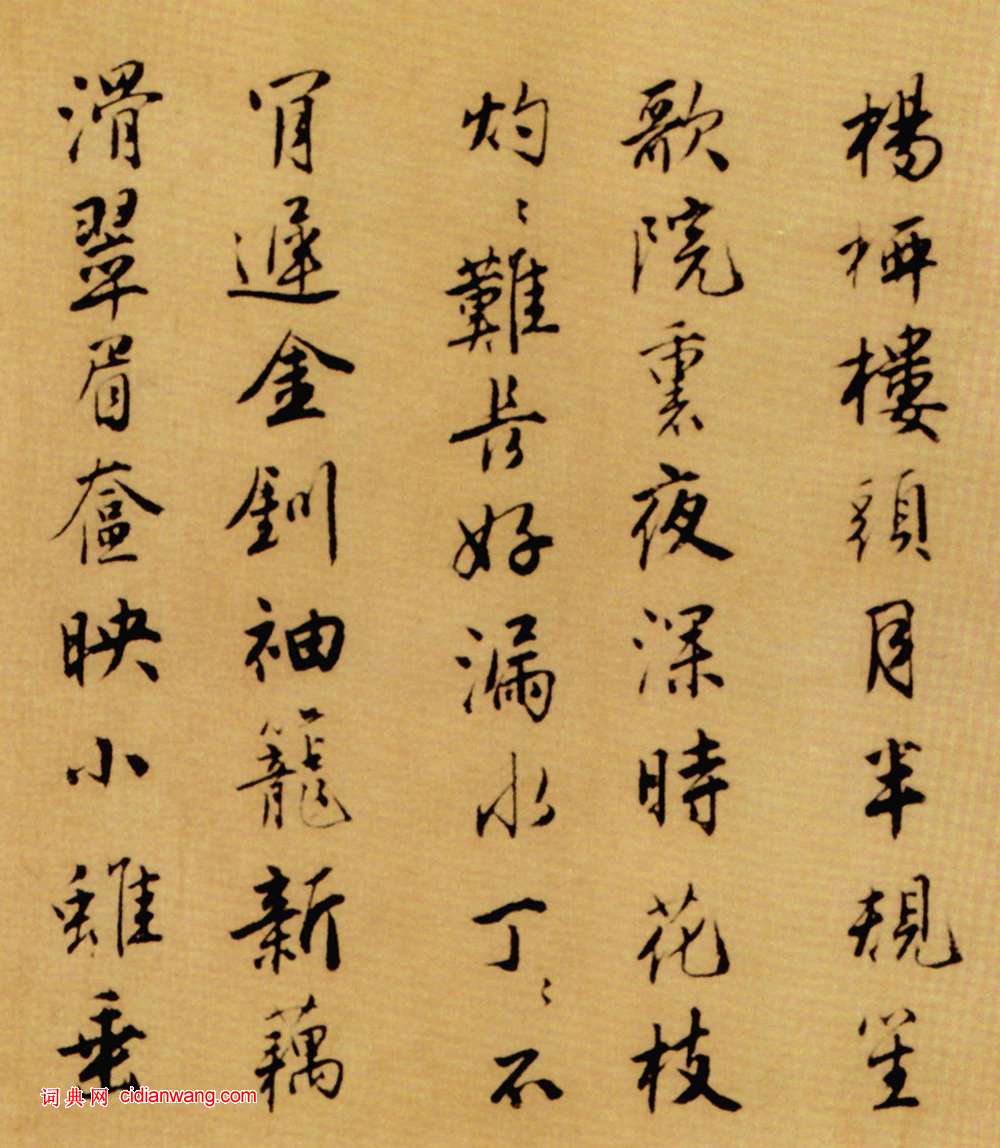 楊桺樓頭月半規笙
歌院裏夜深時花枝
灼〻難長好漏水丁〻不
肎遲金釧袖籠新藕
滑翠眉奩映小雖垂
词典网 cidianwang.com